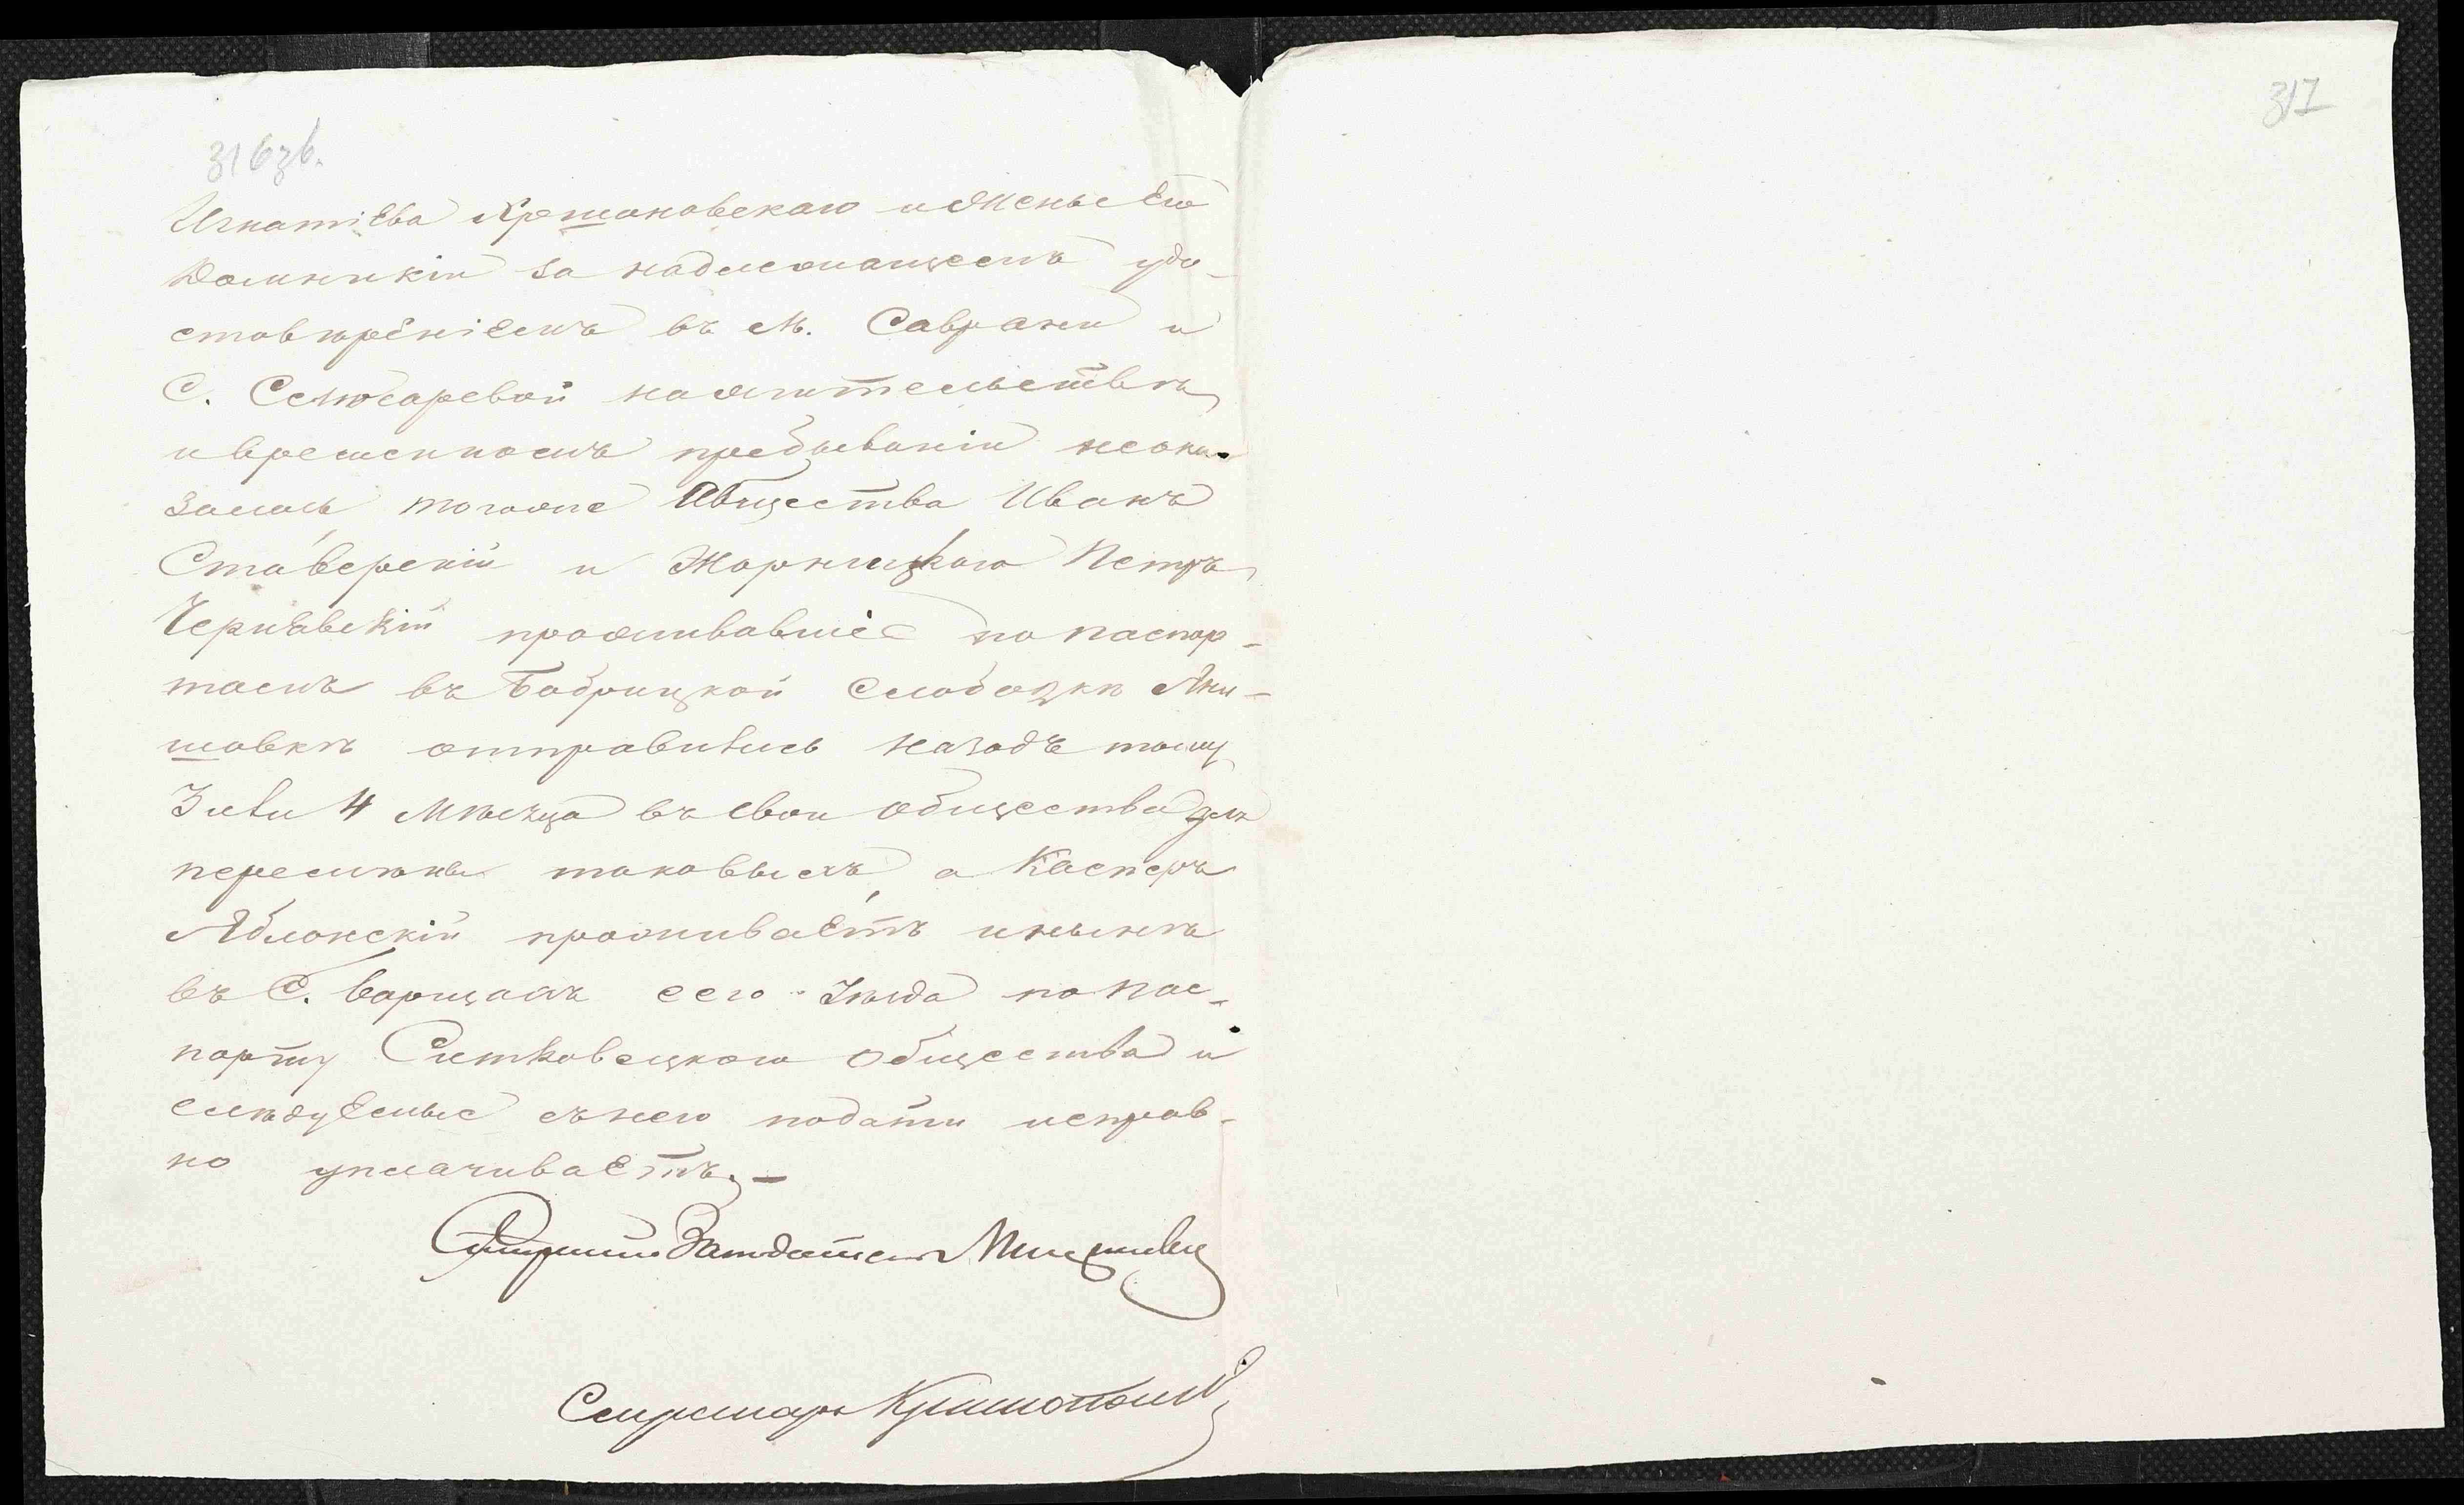 316зв.
317
Игнатіева Крешановскаго и женье Его
Доминикіи за надлежащемъ удо-
стовѣреніемъ въ М. Саврани и
С. Слюсаревой на жительствѣ
и временномъ пребываніи неока-
залось, тогоже Общества Иванъ
Ставерскій и Жорнищкаго Петръ
Чернѣвскій проживавшіе по паспор-
тамъ въ Бобрицкой Слободзкѣ Яни-
шовкѣ отправились назадъ тому
3 или 4 Мѣсяца въ свои общества для
перемѣны таковыхъ, а Касперъ
Яблонскій проживаетъ и нынѣ
въ С. Борщахъ сего Уѣзда по пас-
порту Ситковецкаго общества и
слѣдуемые съ него подати исправ-
но уплачиваетъ. —
Старшій Засѣдатель
Секретарь